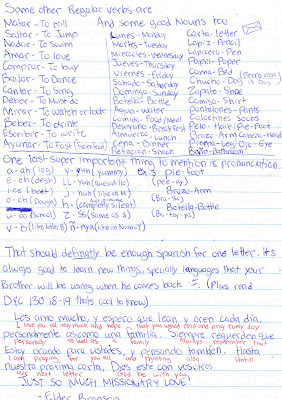 Some other Regular verbs are
Matar - To kill And some good Nouns too
Saltar - To Jump Lunes - Monday Carta - letter
Nadar - To Swim Martes - Tuesday Lapiz - Pencil
Amar - To love Miercoles - Wednesday Lapicero - Pen
Comprar - To buy Jueves - Thursday Papel - Paper
Bailar - To Dance Viernes - Friday Cama - Bed
Cantar - To Sing Sabado - Saturday Chucho - Dog
Deber - To Must do Domingo - Sunday Zapato - Shoe
Mirar - To watch or look Botella - Bottle Camisa - Shirt
Beber - To drink Agua - water Pantalones - Pants
Escribir - To write Comida - Food/Meal Calcetines - Socks
Ayunar - To Fast Desayuno - Breakfast Pelo - Hair Pie - Foot
Almuerzo - Lunch Brazo - Arm Cabeza - Head
Cena - Dinner Pierna - Leg Ojo - Eye
Refaccion - Snack Baño - Bathroom
One last super important thing to mention is pronunciation.
a - ah y - yuh (yummy) ex's pie - foot
e - eh LL - yuh (pee-ay)
i - ee j - huh Brazo - Arm
o - oh h - (completely silent) (Bra-so)
u - oo Z - Ss Botella - Bottle
v - b ñ - nya (Bo-tay-ya)
That should definatly be enough Spanish for one letter. It's
always good to learn new things, specially languages that your
Brother will be using when he comes back (Plus read
D&C 130:18-19 thats cool to know)
Los amo mucho, y espero que lean y oren cada dia,
I love you all very much and hope that you would read and pray every day
personalmente asi como una familia. Siempre requerden que
personally as well as family Always remember that
Estoy orando para ustedes, y pensando tambien. Hasta
I am praying for you all and thinking also Until
nuestra proxima carta, Dios este con vosotros.
our next letter God be with you
JUST SO MUCH MISSIONARY LOVE!
- Elder Bronson